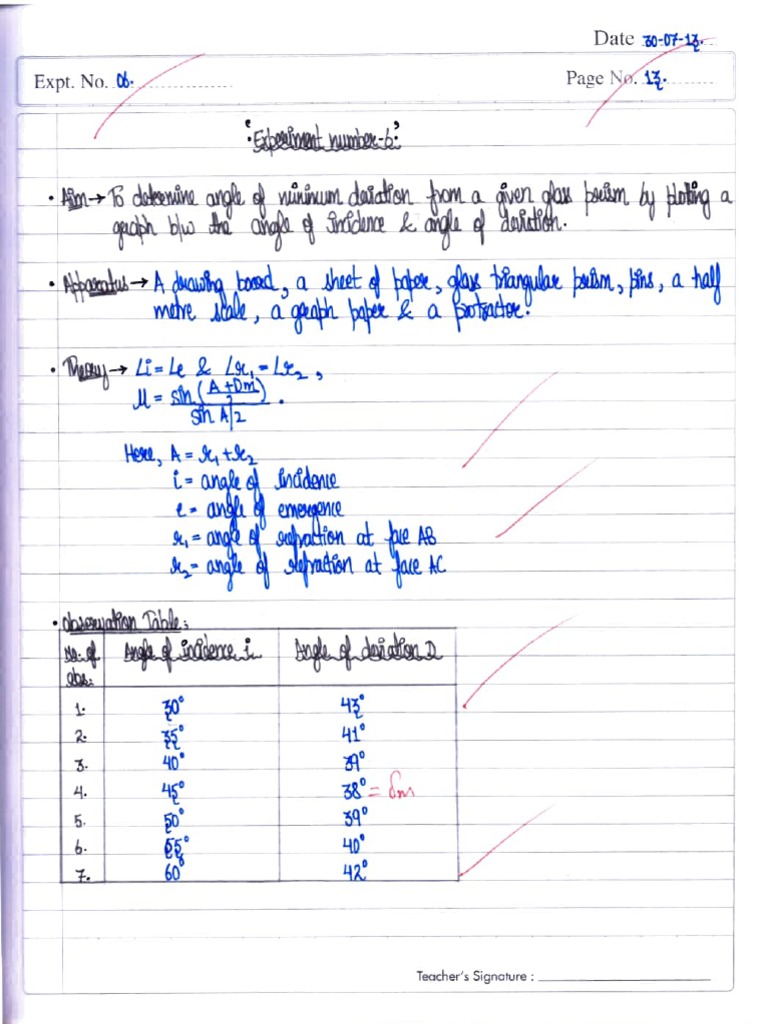 Date 30-07-13.
Expt. No. 06.
Page No. 13.
"Experiment number-6"
• Aim → To determine angle of minimum deviation from a given glass prism by ploting a
graph b/w the angle of incidence & angle of deviation.
• Apparatus → A drawing board, a sheet of paper, glass triangular prism, pins, a half
metre scale, a graph paper & a protractor.
• Theory → ∠i = ∠e & ∠r₁ = ∠r₂ ,
μ = sin (A+Dm / 2) / sin A/2 .
Here, A = r₁ + r₂
i = angle of incidence
e = angle of emergence
r₁ = angle of refraction at face AB
r₂ = angle of refraction at face AC
• Observation Table:
No. of obs. Angle of incidence i Angle of deviation D
1. 30° 43°
2. 35° 41°
3. 40° 39°
4. 45° 38° = δm
5. 50° 39°
6. 55° 40°
7. 60° 42°
Teacher's Signature :